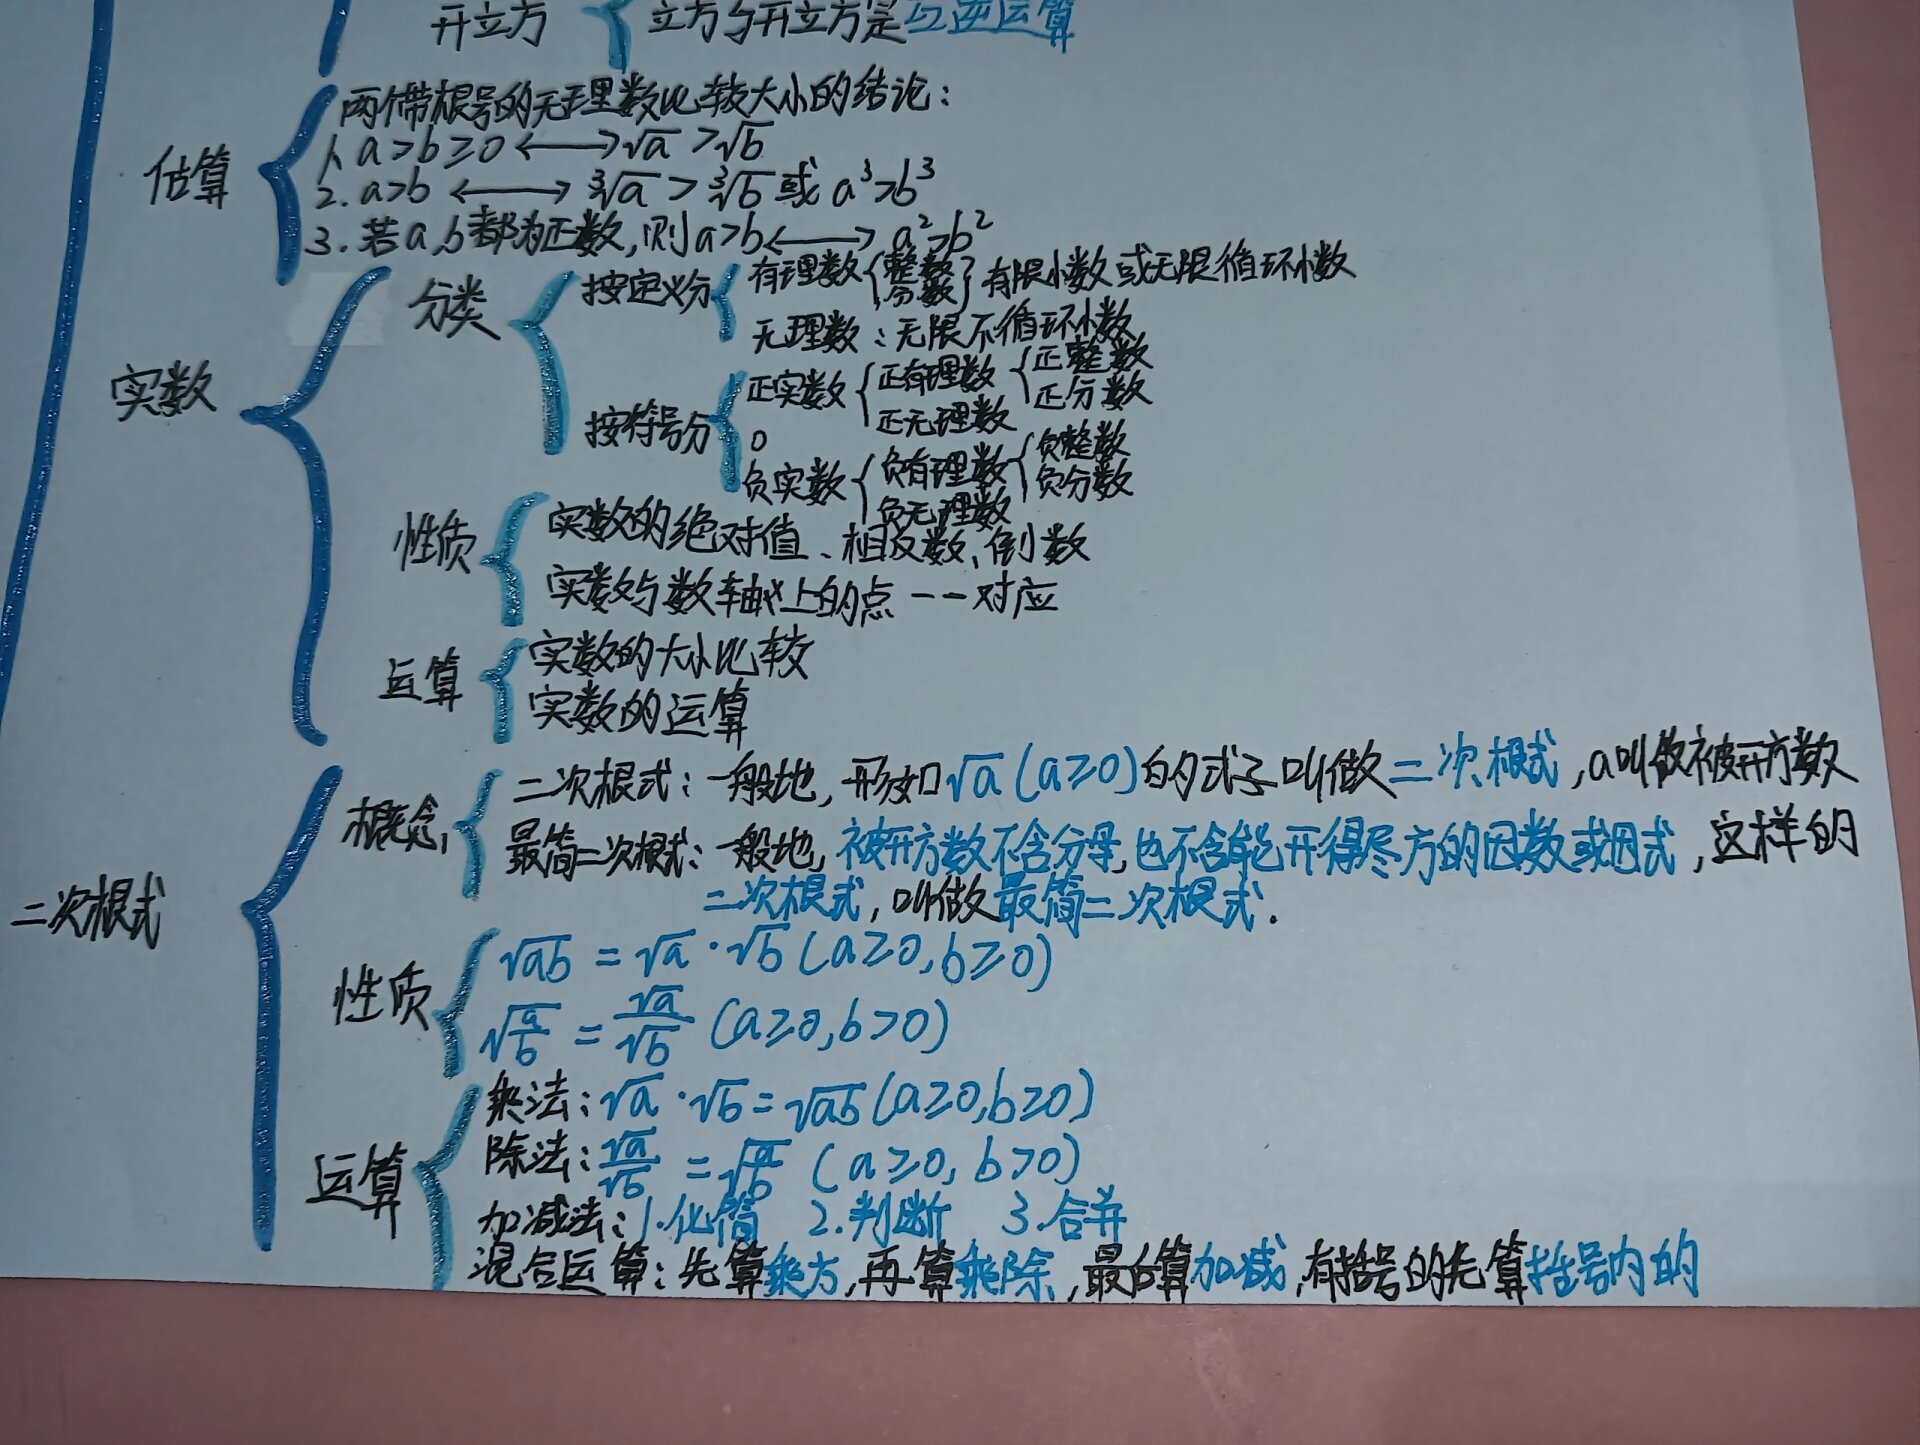 开立方 立方与开立方是互逆运算
估算
两个带根号的无理数比较大小的结论：
1. a>b≥0 ⟷ √a >√b
2. a>b ⟷ ³√a > ³√b 或 a³>b³
3. 若a,b都为正数,则a>b ⟷ a²>b²
实数
分类
按定义分
有理数 整数 分数 有限小数或无限循环小数
无理数：无限不循环小数
按符号分
正实数 正有理数 正整数
正分数
正无理数
0
负实数 负有理数 负整数
负分数
负无理数
性质
实数的绝对值、相反数、倒数
实数与数轴上的点一一对应
运算
实数的大小比较
实数的运算
二次根式
概念
二次根式：一般地, 形如√a (a≥0)的式子叫做二次根式, a叫做被开方数
最简二次根式：一般地, 被开方数不含分母, 也不含能开得尽方的因数或因式, 这样的
二次根式, 叫做最简二次根式.
性质
√ab = √a · √b (a≥0, b≥0)
√(a/b) = √a/√b (a≥0, b>0)
运算
乘法：√a · √b = √ab (a≥0, b≥0)
除法：√a/√b = √(a/b) (a≥0, b>0)
加减法：1.化简 2.判断 3.合并
混合运算：先算乘方, 再算乘除, 最后算加减, 有括号的先算括号内的